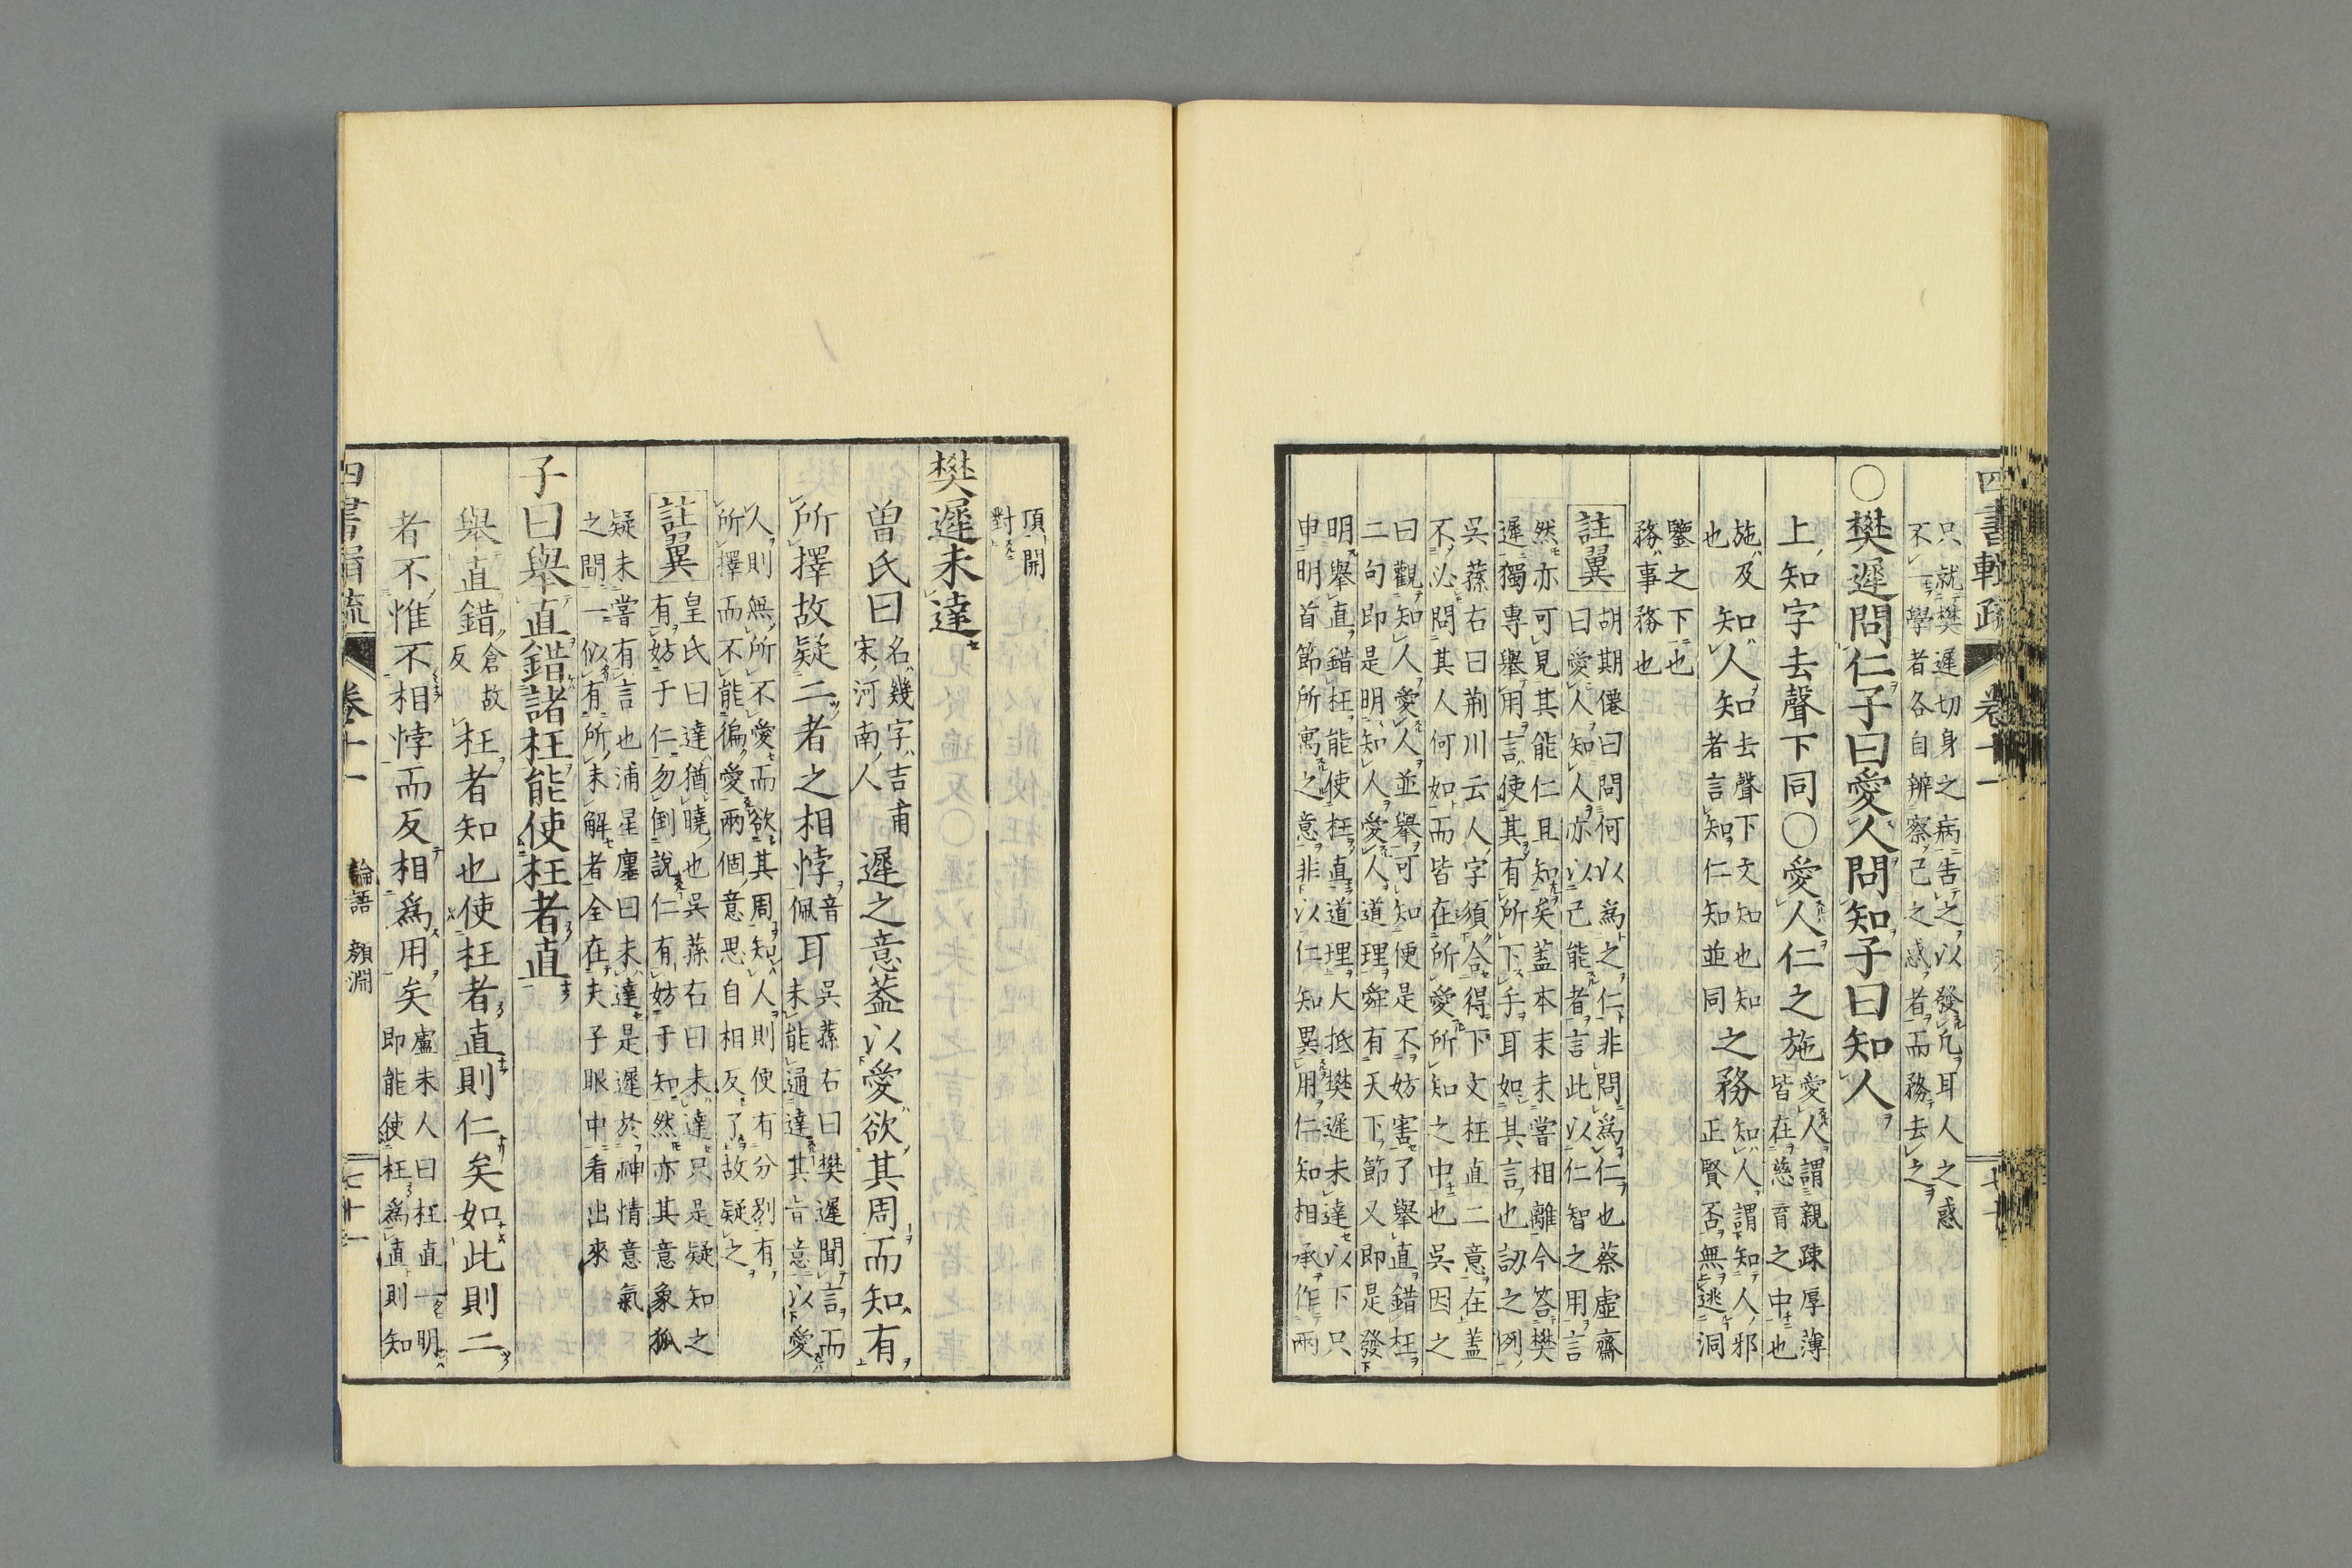 四書
卷十一
只就樊遲切身之病告之以發凡耳人之惑
不一學者各自辨察己之惑者而務去之
○樊遲問仁子曰愛人問知子曰知人
上知字去聲下同○愛人仁之施
愛人謂親疎厚薄
皆在慈育之中也
施及知人知之務
去聲下文知也知知人謂知人邪
也者言知仁知並同正賢否無逃洞
鑒之下也
務事務也
註翼
胡期僊曰問何以爲之仁非問爲仁也蔡虛齋
曰愛人知人亦以己能者言此以仁智之用言
然亦可見其能仁且知矣蓋本末未嘗相離今答樊
遲獨專舉用言使其有所下手耳如其言也訒之例
吳蓀右曰荊川云人字須合得下文枉直二意在蓋
不必問其人何如而皆在所愛所知之中也吳因之
曰觀知人愛人並舉可知便是不妨害了舉直錯枉
二句即是明知人愛人道理舜有天下節又即是發
明舉直錯枉能使枉直道理大抵樊遲未達以下只
申明首節所寓之意非以仁知異用仁知相承作兩
頂開
對
樊遲未達
曾氏曰
名幾字吉甫
宋河南人
遲之意蓋以愛欲其周而知有
所擇故疑二者之相悖
音
佩
耳
吳蓀右曰樊遲聞言而
未能通達其旨意以愛
人則無所不愛而欲其周知人則使有分別有
所擇而不能徧愛兩個意思自相反了故疑之
註翼
皇氏曰達猶曉也吳蓀右曰未達只是疑知之
有妨于仁勿倒說仁有妨于知然亦其意象狐
疑未嘗有言也浦星塵曰未達是遲於神情意氣
之間一似有所未解者全在夫子眼中看出來
子曰舉直錯諸枉能使枉者直
舉直錯
倉故
反
枉者知也使枉者直則仁矣如此則二
者不惟不相悖而反相爲用矣
盧未人曰枉直一明
即能使枉爲直則知
卷十一
論語 顏淵
七十一